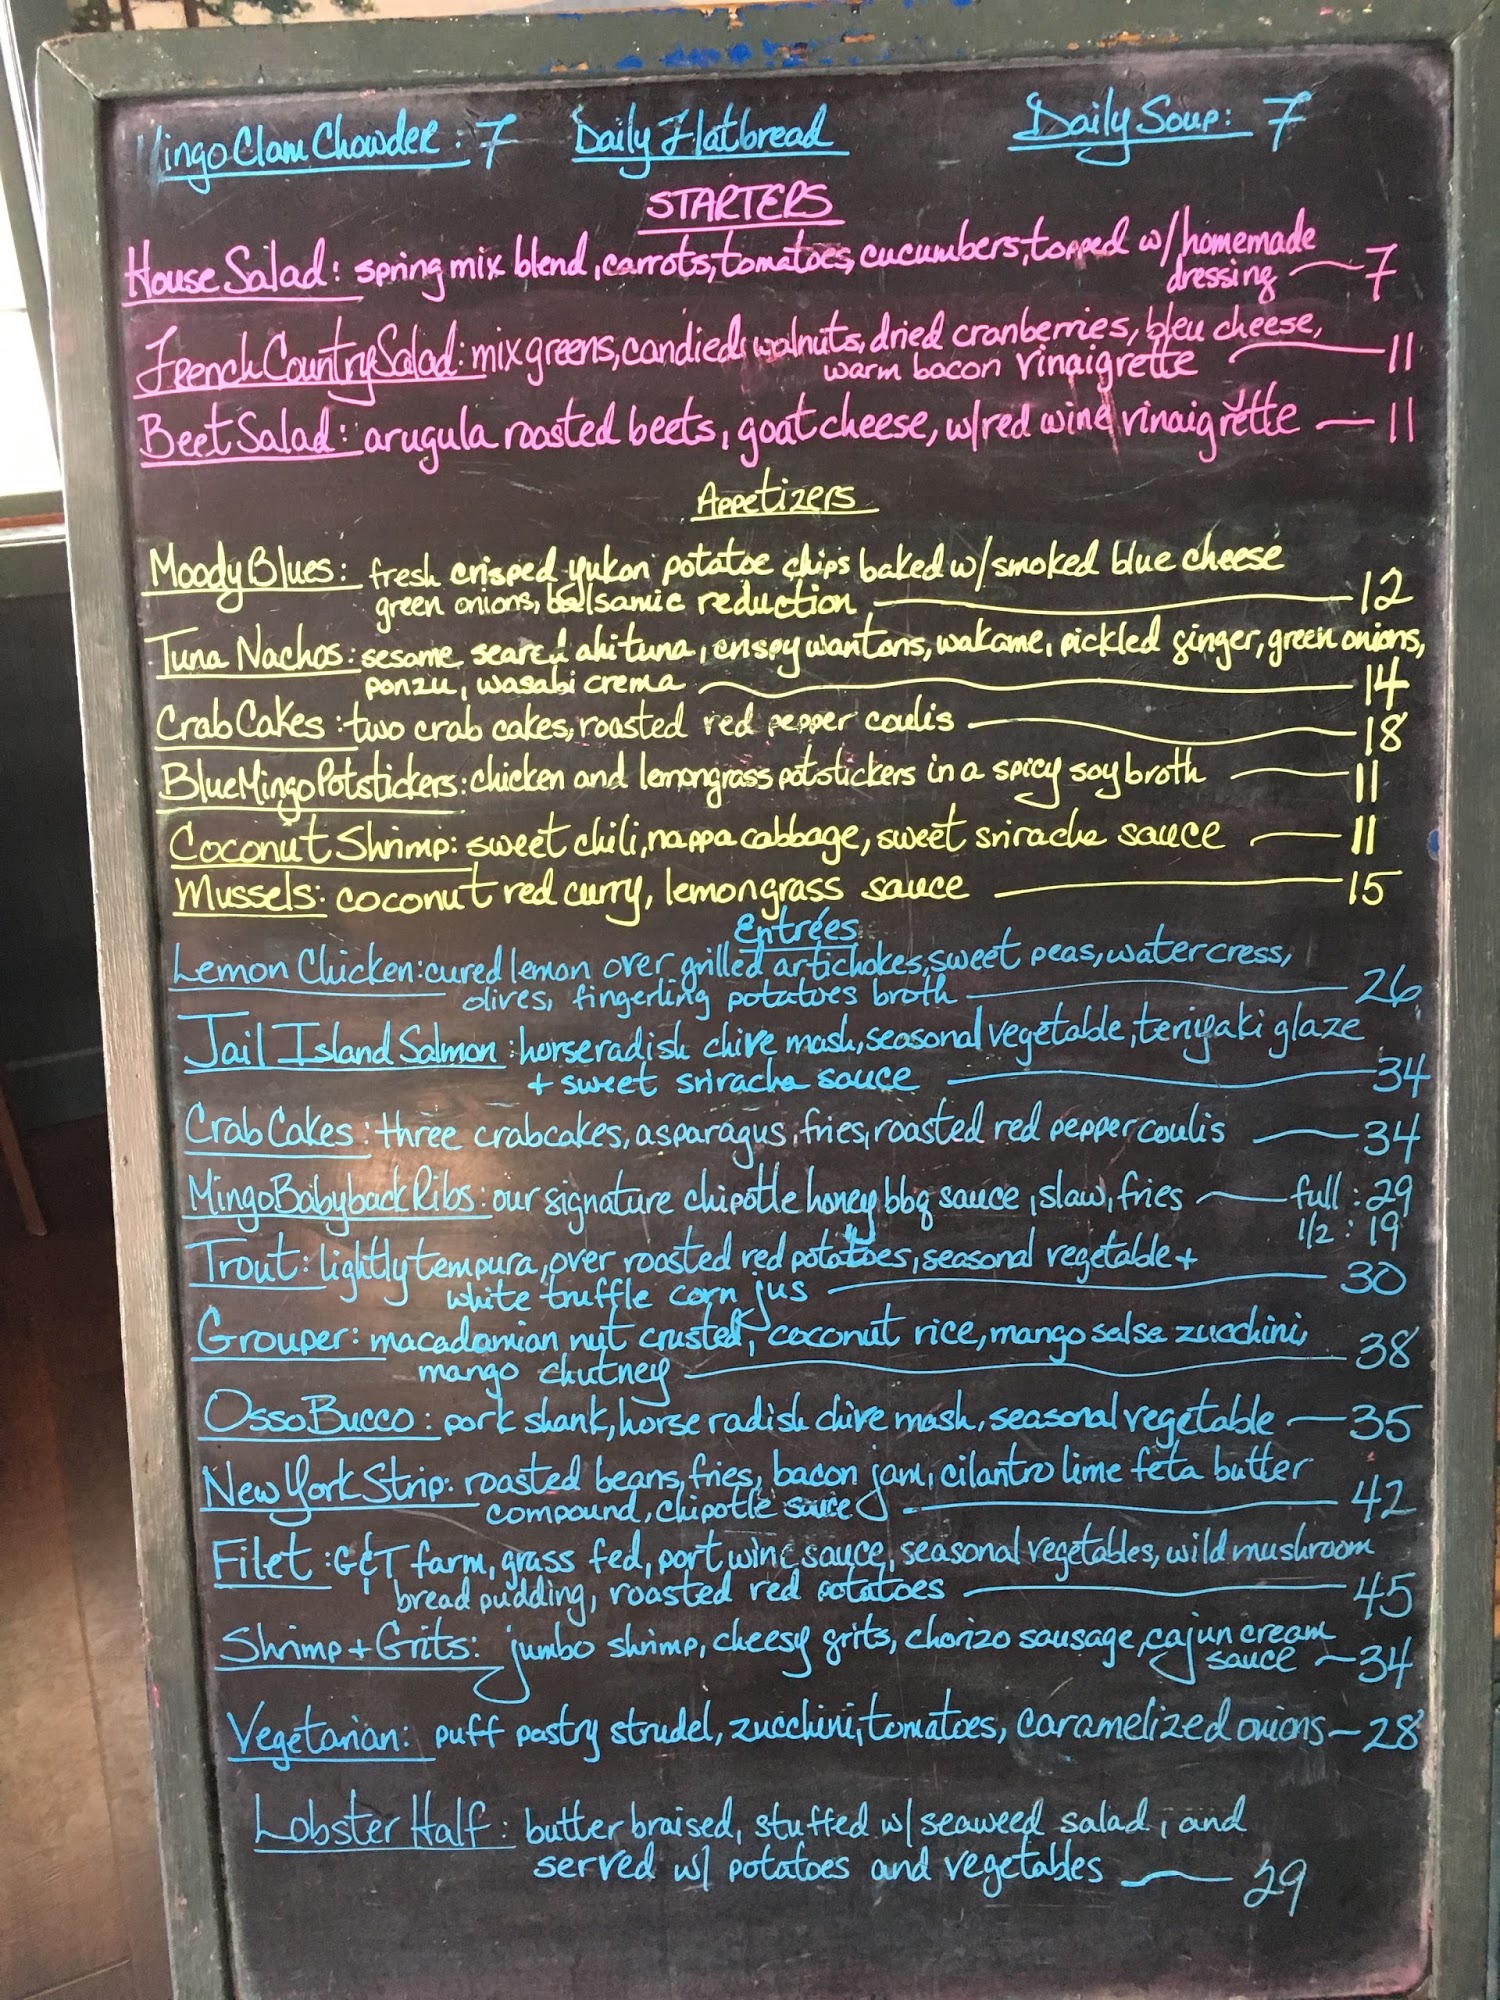 Mingo Clam Chowder: 7 Daily Flatbread Daily Soup: 7
STARTERS
House Salad: spring mix blend, carrots, tomatoes, cucumbers, topped w/ homemade
dressing — 7
French Country Salad: mix greens, candied walnuts, dried cranberries, bleu cheese,
warm bacon vinaigrette — 11
Beet Salad: arugula roasted beets, goat cheese, w/ red wine vinaigrette — 11
Appetizers
Moody Blues: fresh crisped yukon potatoe chips baked w/ smoked blue cheese
green onions, balsamic reduction — 12
Tuna Nachos: sesame seared ahi tuna, crispy wantons, wakame, pickled ginger, green onions,
ponzu, wasabi crema — 14
Crab Cakes: two crab cakes, roasted red pepper coulis — 18
Blue Mingo Potstickers: chicken and lemongrass potstickers in a spicy soy broth — 11
Coconut Shrimp: sweet chili, nappa cabbage, sweet sriracha sauce — 11
Mussels: coconut red curry, lemongrass sauce — 15
Entrées
Lemon Chicken: cured lemon over grilled artichokes, sweet peas, watercress,
olives, fingerling potatoes broth — 26
Jail Island Salmon: horseradish chive mash, seasonal vegetable, teriyaki glaze
+ sweet sriracha sauce — 34
Crab Cakes: three crabcakes, asparagus, fries, roasted red pepper coulis — 34
Mingo Babyback Ribs: our signature chipotle honey bbq sauce, slaw, fries — full: 29
1/2: 19
Trout: lightly tempura, over roasted red potatoes, seasonal vegetable +
white truffle corn jus — 30
Grouper: macadamian nut crusted, coconut rice, mango salsa zucchini,
mango chutney — 38
Osso Bucco: pork shank, horse radish chive mash, seasonal vegetable — 35
New York Strip: roasted beans, fries, bacon jam, cilantro lime feta butter
compound, chipotle sauce — 42
Filet: G&T farm, grass fed, port wine sauce, seasonal vegetables, wild mushroom
bread pudding, roasted red potatoes — 45
Shrimp + Grits: jumbo shrimp, cheesy grits, chorizo sausage, cajun cream
sauce — 34
Vegetarian: puff pastry strudel, zucchini, tomatoes, caramelized onions — 28
Lobster Half: butter braised, stuffed w/ seaweed salad, and
served w/ potatoes and vegetables — 29